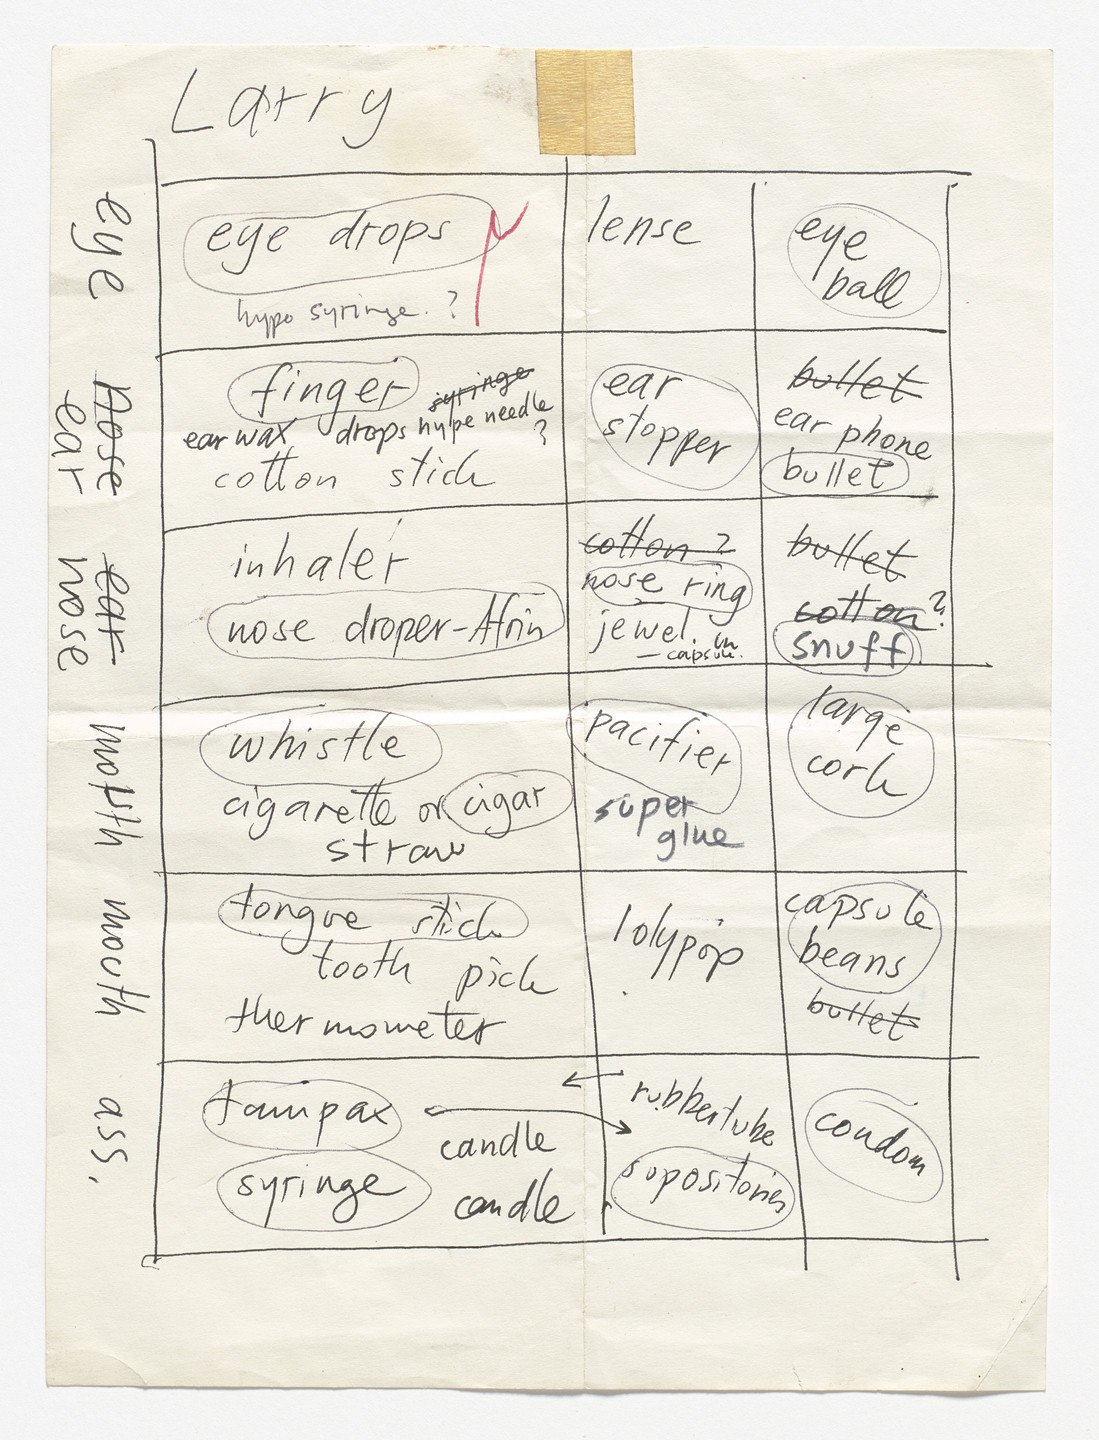 Larry
eye
eye drops
hypo syringe. ?
lense
eye
ball
nose
ear
finger
syringe
ear wax drops hype needle
?
cotton stick
ear
stopper
bullet
ear phone
bullet
ear
nose
inhaler
nose droper-Afrin
cotton ?
nose ring
jewel.
— capsule.
bullet
cotton ?
snuff
mouth
whistle
cigarette or cigar
straw
pacifier
super
glue
large
cork
mouth
tongue stick
tooth pick
thermometer
lolypop
capsule
beans
bullet
ass.
tampax
candle
syringe
candle
rubbertube
supositories
condom